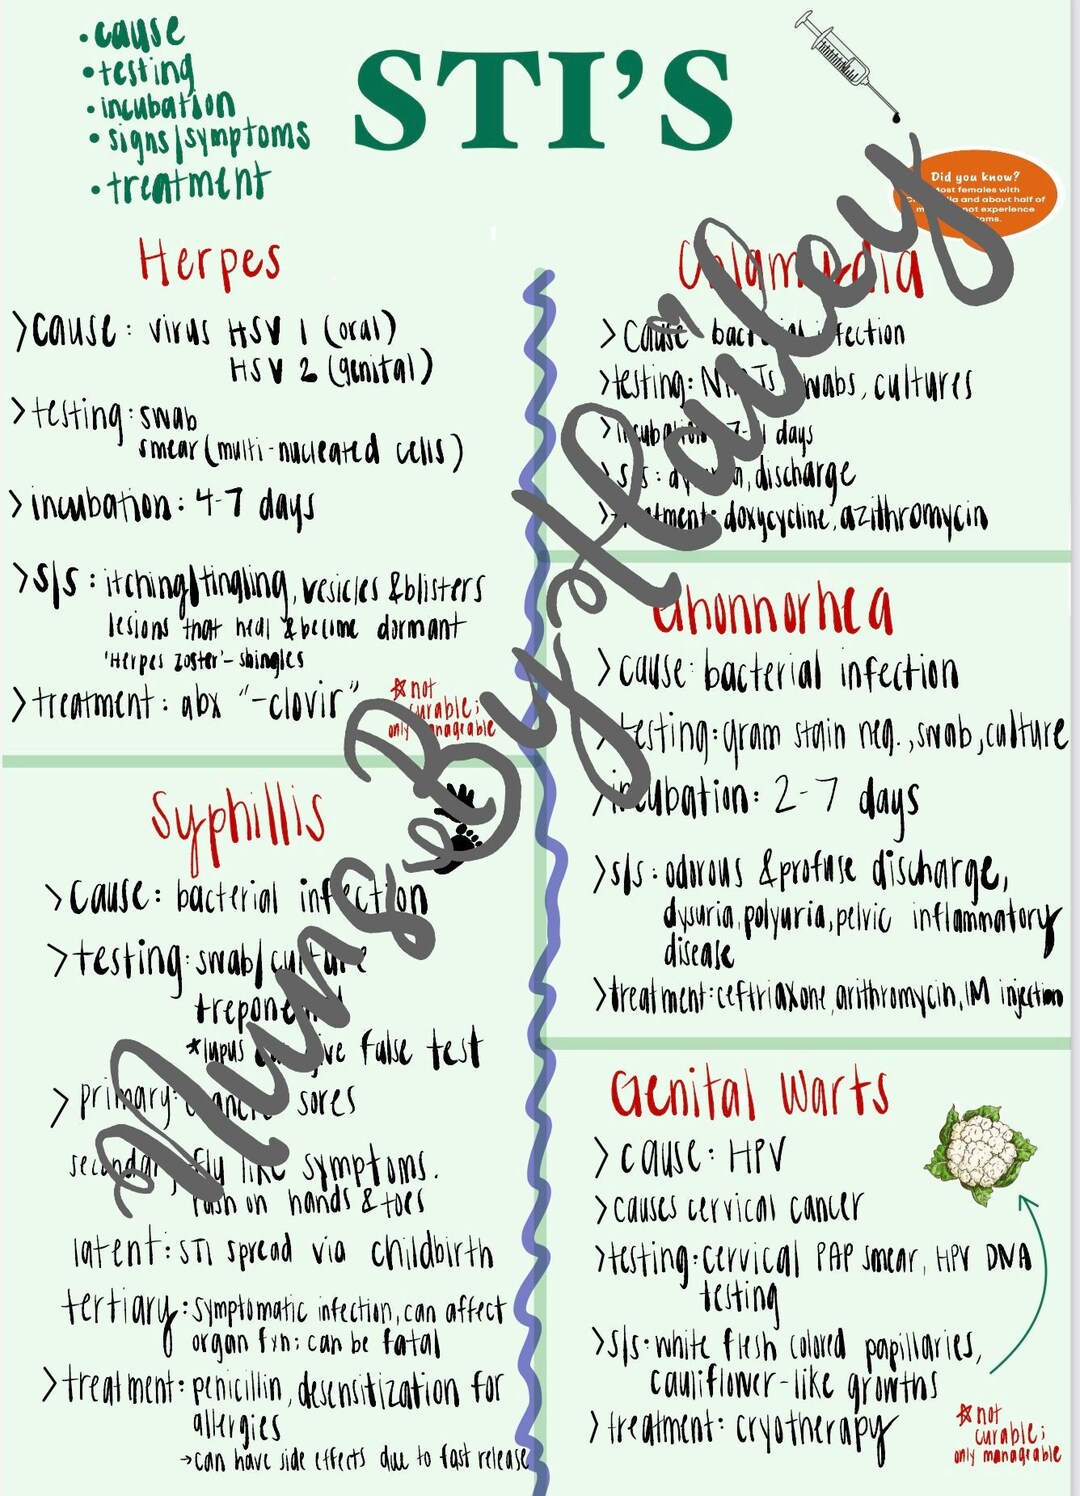 • cause
• testing
• incubation
• signs/symptoms
• treatment
STI'S
Did you know?
Most females with
and about half of
not experience
Herpes
>cause: virus HSV 1 (oral)
HSV 2 (genital)
>testing: swab
smear (multi-nucleated cells)
>incubation: 4-7 days
>s/s: itching/tingling, vesicles & blisters
lesions that heal & become dormant
'Herpes zoster' - shingles
>treatment: abx "-clovir"
*not
curable;
only manageable
Syphillis
>cause: bacterial infection
>testing: swab/culture
*lupus give false test
>primary: chancre sores
secondary flu like symptoms.
rash on hands & toes
latent: STI spread via childbirth
tertiary: symptomatic infection, can affect
organ fxn; can be fatal
>treatment: penicillin, desensitization for
allergies
→can have side effects due to fast release
Chlamydia
>Cause: bacterial infection
>testing: NAATs, swabs, cultures
>incubation: days
>s/s: dysuria, discharge
>treatment: doxycycline, azithromycin
Ghonnorhea
>cause: bacterial infection
>testing: gram stain neg., swab, culture
>incubation: 2-7 days
>s/s: odorous & profuse discharge,
dysuria, polyuria, pelvic inflammatory
disease
>treatment: ceftriaxone, arithromycin, IM injection
Genital Warts
>cause: HPV
>causes cervical cancer
>testing: cervical PAP smear, HPV DNA
testing
>s/s: white flesh colored papillaries,
cauliflower-like growths
>treatment: cryotherapy
*not
curable;
only manageable
Nurse By Hailey